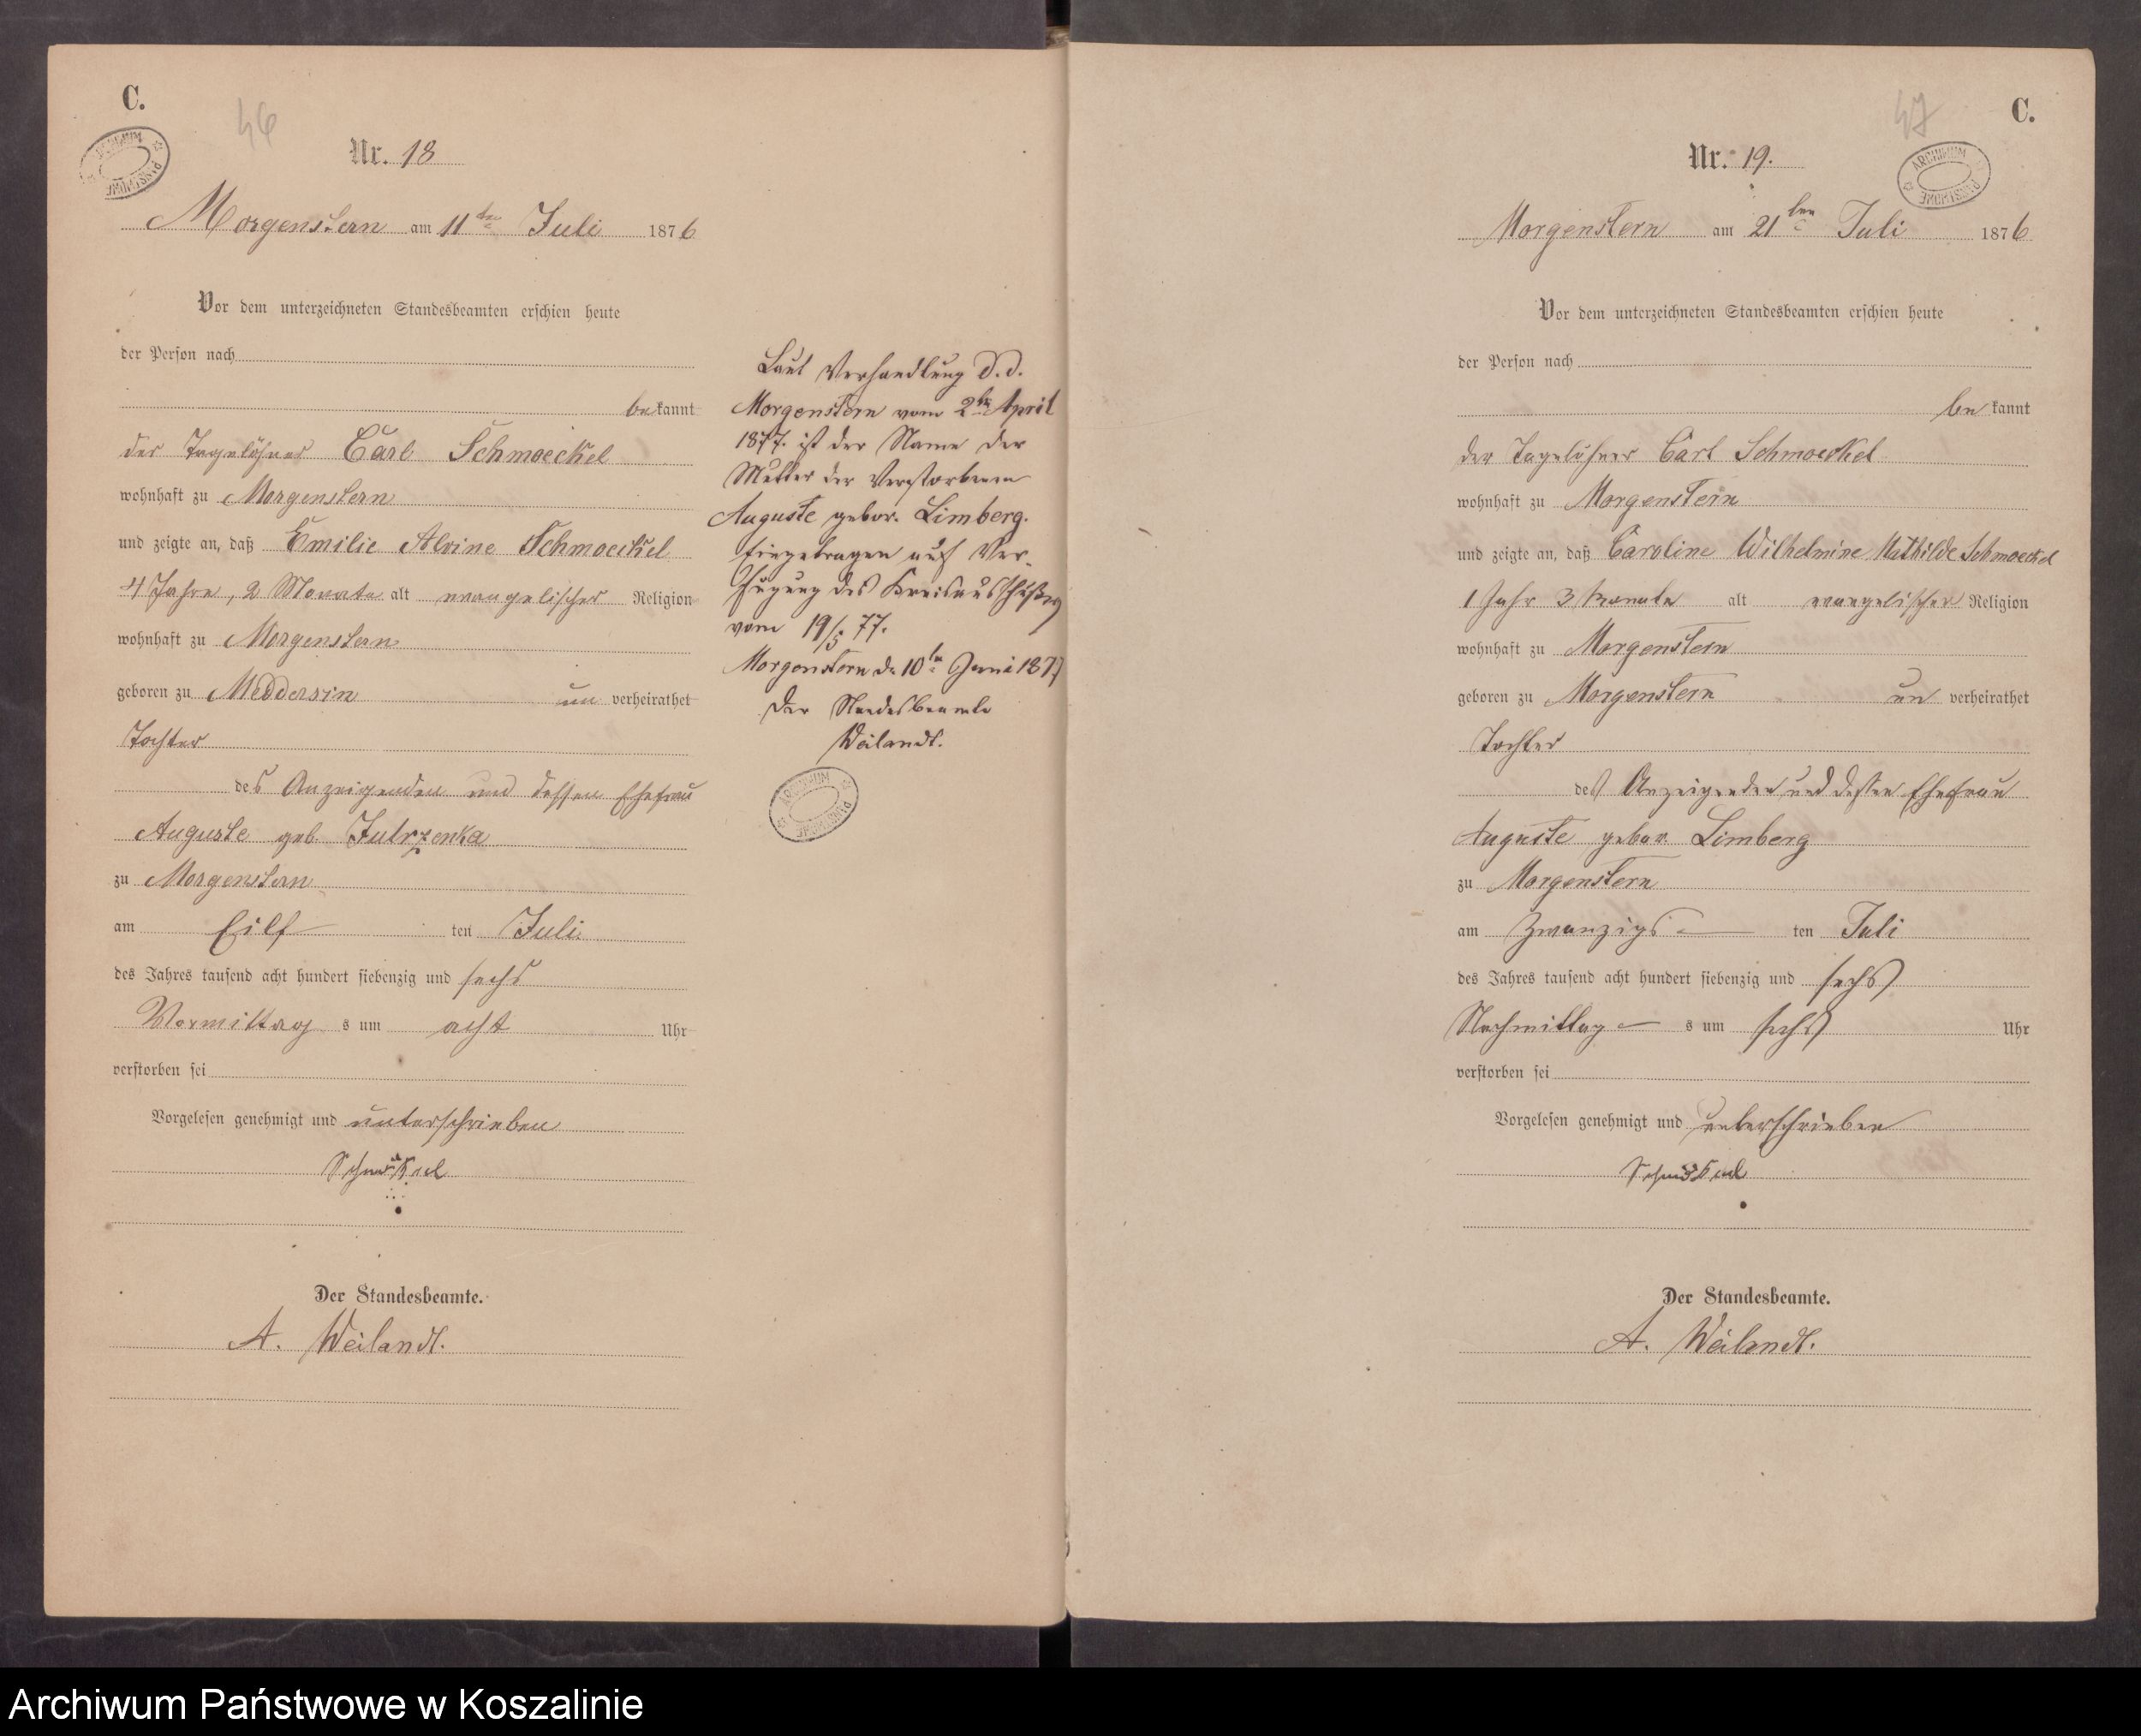 C.
46
Nr. 18
ARCHIWUM PAŃSTWOWE
Morgenstern am 11ten Juli 1876
Vor dem unterzeichneten Standesbeamten erschien heute
der Person nach
bekannt
der Tagelöhner Carl Schmoeckel
wohnhaft zu Morgenstern
und zeigte an, daß Emilie Alvine Schmoeckel
4 Jahre, 2 Monate alt evangelischer Religion
wohnhaft zu Morgenstern
geboren zu Meddersin un verheirathet
Tochter
des Anzeigenden und dessen Ehefrau
Auguste geb. Jutrzenka
zu Morgenstern
am Eilf ten Juli
des Jahres tausend acht hundert siebenzig und sechs
Vormittag s um acht Uhr
verstorben sei
Vorgelesen genehmigt und unterschrieben
Schmöckel
Der Standesbeamte.
A. Weilandt.
Laut Verhandlung d. d.
Morgenstern vom 2ten April
1877. ist der Name der
Mutter der Verstorbenen
Auguste gebor. Limberg.
Eingetragen auf Ver-
fügung des Kreisausschußes
vom 19/5 77.
Morgenstern d. 10ten Juni 1877
Der Standesbeamte
Weilandt.
ARCHIWUM PAŃSTWOWE
47
C.
Nr. 19.
ARCHIWUM PAŃSTWOWE
Morgenstern am 21ten Juli 1876
Vor dem unterzeichneten Standesbeamten erschien heute
der Person nach
be kannt
der Tagelöhner Carl Schmoeckel
wohnhaft zu Morgenstern
und zeigte an, daß Caroline Wilhelmine Mathilde Schmoeckel
1 Jahr 3 Monate alt evangelischer Religion
wohnhaft zu Morgenstern
geboren zu Morgenstern un verheirathet
Tochter
des Anzeigenden und dessen Ehefrau
Auguste gebor. Limberg
zu Morgenstern
am Zwanzigs ten Juli
des Jahres tausend acht hundert siebenzig und sechs
Nachmittag s um sechs Uhr
verstorben sei
Vorgelesen genehmigt und unterschrieben
Schmöckel
Der Standesbeamte.
A. Weilandt.
Archiwum Państwowe w Koszalinie